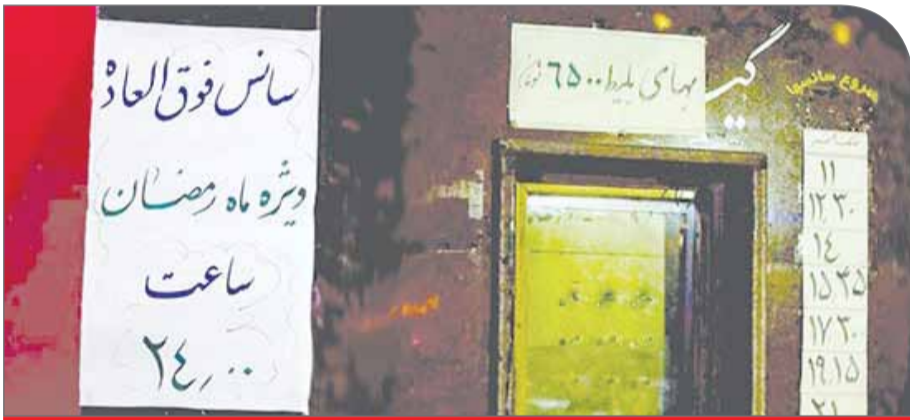 سانس فوق العاده
ویژه ماه رمضان
ساعت
۲۴٫۰۰
بهای بلیط ۶۵۰۰ تومان
شروع سانسها
۱۱
۱۲٫۳۰
۱۴
۱۵٫۴۵
۱۷٫۳۰
۱۹٫۱۵
۲۱